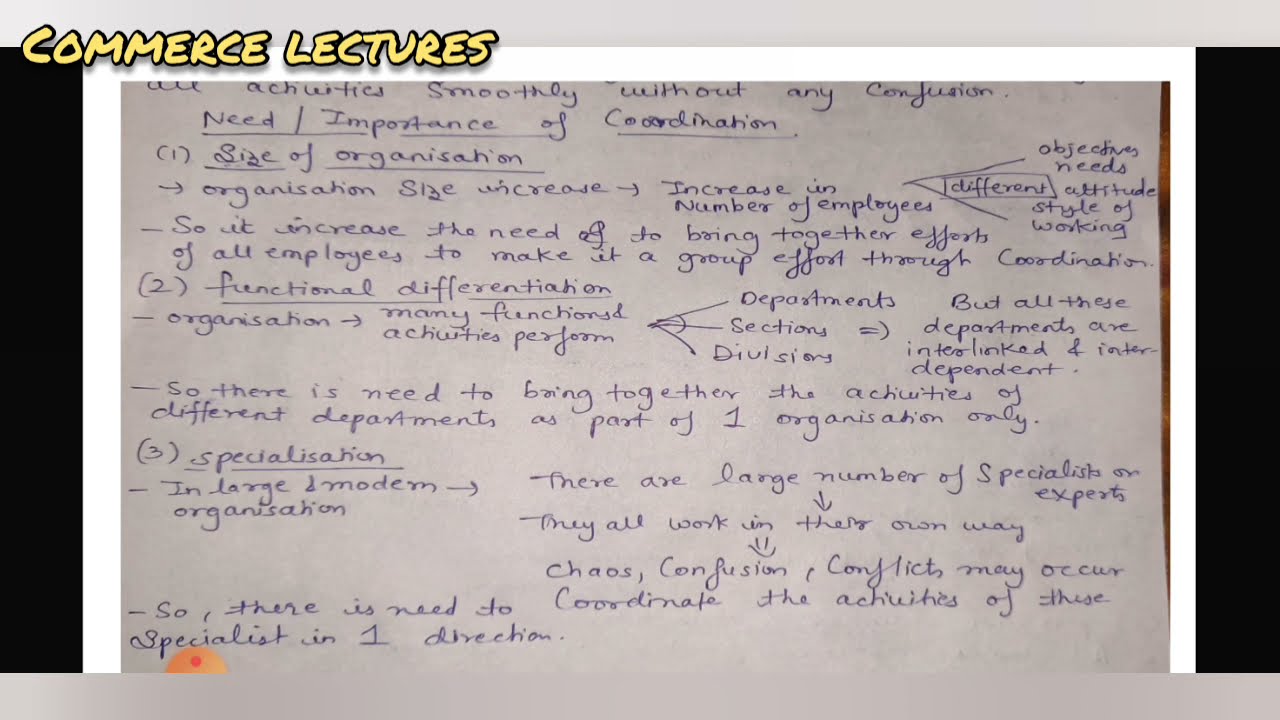 COMMERCE LECTURES
all activities smoothly without any confusion.
Need / Importance of Coordination.
(1) Size of organisation
→ organisation size increase → Increase in Number of employees
different
objectives
needs
attitude
style of
working
- So it increase the need of to bring together efforts
of all employees to make it a group effort through Coordination.
(2) functional differentiation
- organisation → many functions &
activities perform
Departments
Sections =>
Divisions
But all these
departments are
interlinked & inter-
dependent.
- So there is need to bring together the activities of
different departments as part of 1 organisation only.
(3) Specialisation
- In large & modern →
organisation
There are large number of Specialists or
experts
↓
They all work in their own way
⇓
Chaos, Confusion, Conflicts may occur
- So, there is need to Coordinate the activities of these
Specialist in 1 direction.